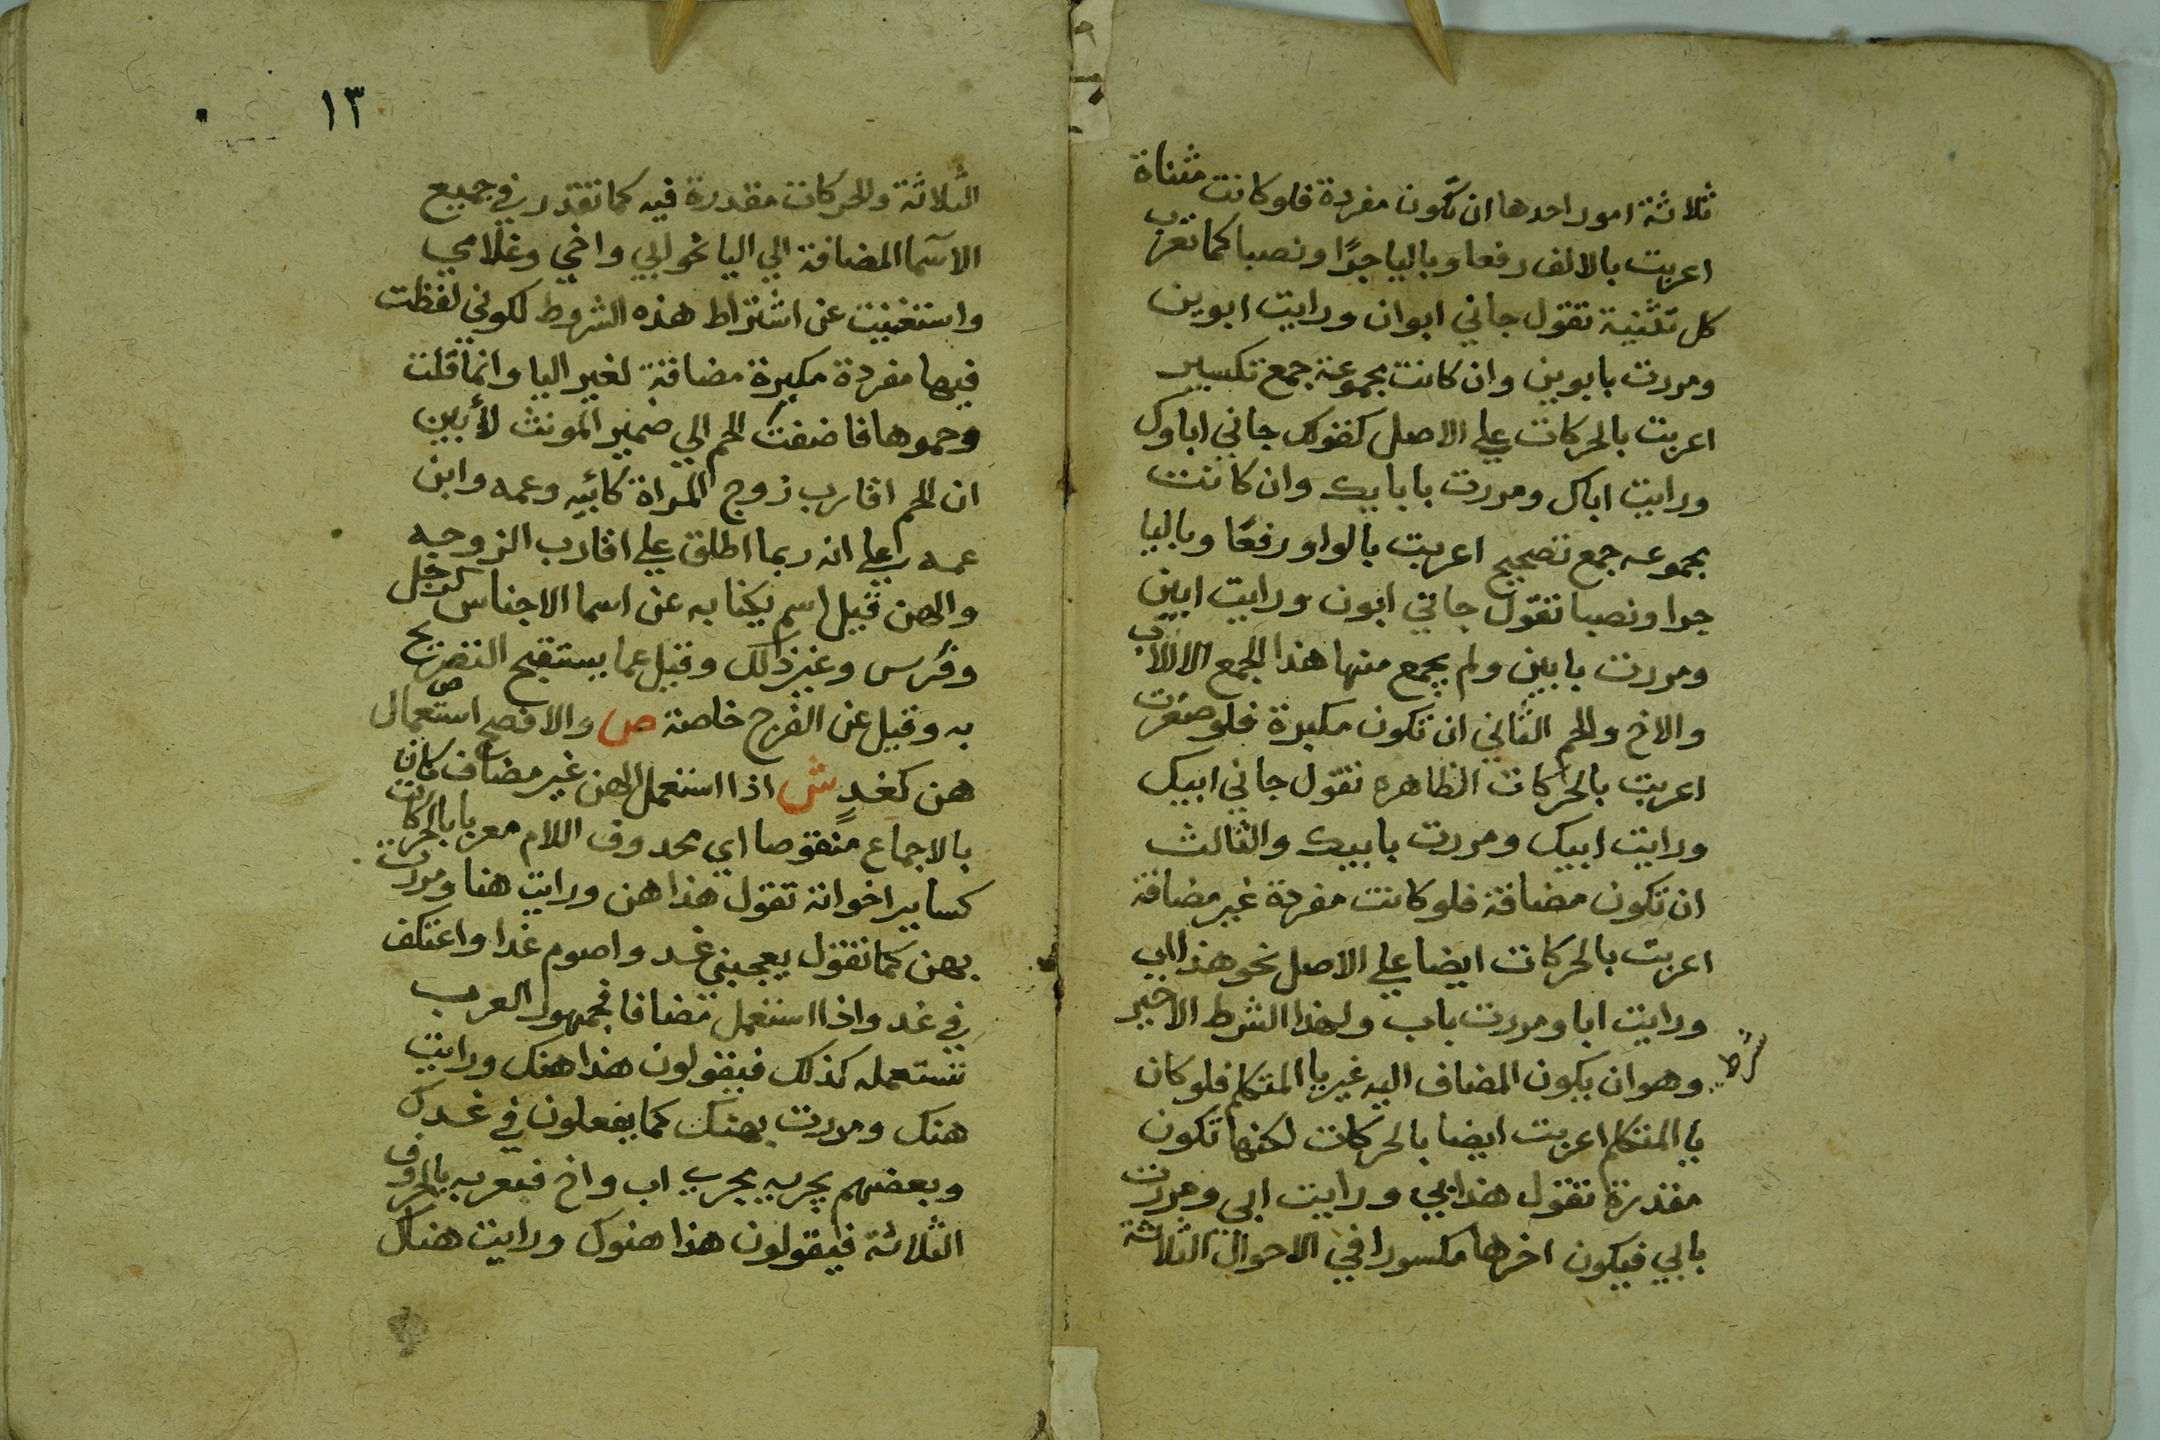 ثلاثة امور احدها ان تكون مفردة فلو كانت مثناة
اعربت بالالف رفعا وباليا جرًا ونصبا كما تعرب
كل تثنية تقول جاني ابوان ورايت ابوين
ومررت بابوين وان كانت مجموعة جمع تكسير
اعربت بالحركات علي الاصل كقولك جاني اباوك
ورايت اباك ومررت بابايك وان كانت
مجموعه جمع تصحيح اعربت بالواو رفعًا وباليا
جرا ونصبا تقول جاني ابون ورايت ابين
ومررت بابين ولم يجمع منها هذا الجمع الا الاب
والاخ والحم الثاني ان تكون مكبرة فلو صغرت
اعربت بالحركات الظاهره تقول جاني ابيك
ورايت ابيك ومررت بابيك والثالث
ان تكون مضافة فلو كانت مفردة غير مضافة
اعربت بالحركات ايضا علي الاصل نحو هذا اب
ورايت ابا ومررت باب ولهذا الشرط الاخير
شرط
وهو ان يكون المضاف اليه غير يا المتكلم فلو كان
يا المتكلم اعربت ايضا بالحركات لكنها تكون
مقدرة تقول هذا ابي ورايت ابي ومررت
بابي فيكون اخرها مكسورا في الاحوال الثلاثة
١٣
الثلاثة والحركات مقدرة فيه كما تقدر في جميع
الاسما المضافة الي اليا نحو ابي واخي وغلامي
واستغنيت عن اشتراط هذه الشروط لكوني لفظت
فيها مفردة مكبرة مضافة لغير اليا وانما قلت
وحموها فاضفت الحم الي ضمير المونث لأبين
ان الحم اقارب زوج المراة كابيه وعمه وابن
عمه علي انه ربما اطلق علي اقارب الزوجه
والهن قيل اسم يكنا به عن اسما الاجناس كرجل
وفرس وغير ذلك وقيل عما يستقبح التصريح
به وقيل عن الفرج خاصة ص والافصح استعمال
هن كغدٍ ش اذا استعمل الهن غير مضاف كان
بالاجماع منقوصا اي محذوف اللام معربا بالحركات
كساير اخواته تقول هذا هن ورايت هنا ومررت
بهن كما تقول يعجبني غد واصوم غدا واعتكف
في غد واذا استعمل مضافا فجمهور العرب
تستعمله كذلك فيقولون هذا هنك ورايت
هنك ومررت بهنك كما يفعلون في غدك
وبعضهم يجريه مجري اب واخ فيعربه بالحروف
الثلاثة فيقولون هذا هنوك ورايت هناك